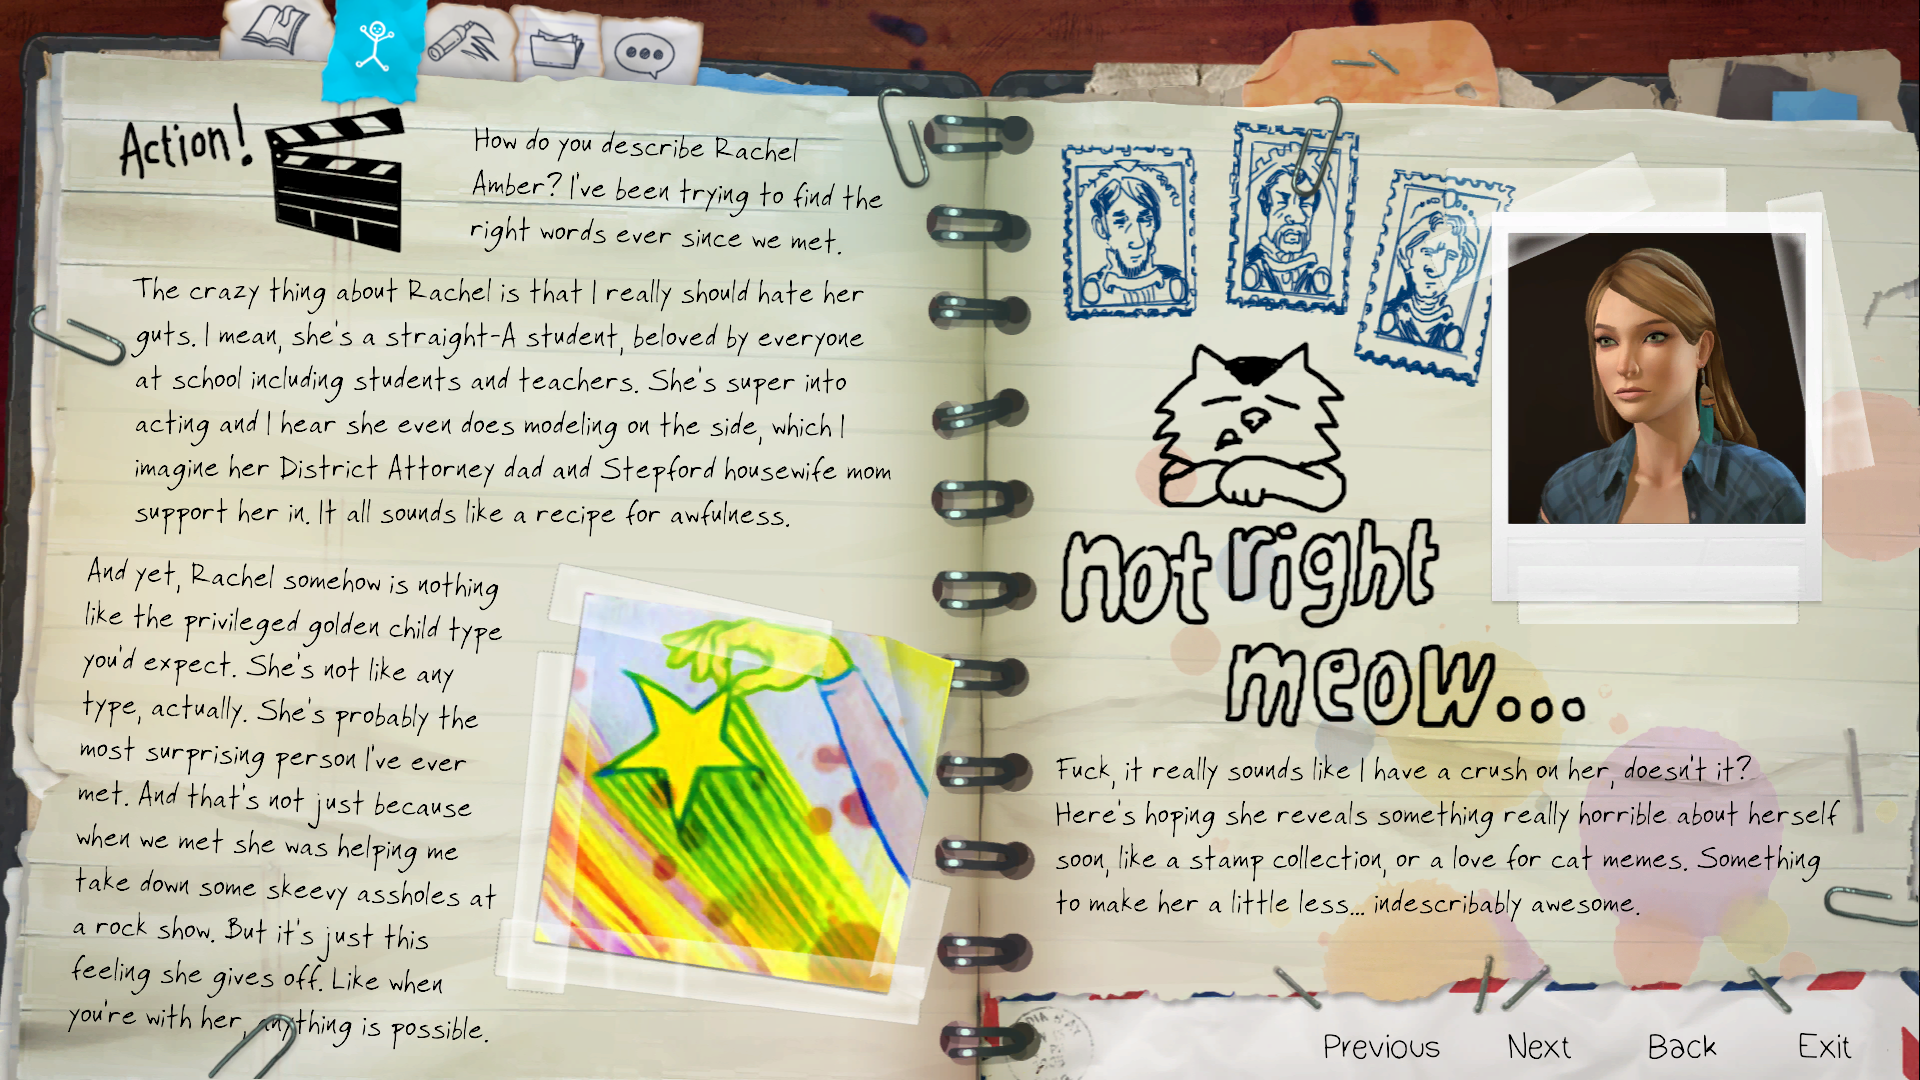 Action!
How do you describe Rachel
Amber? I've been trying to find the
right words ever since we met.
The crazy thing about Rachel is that I really should hate her
guts. I mean, she's a straight-A student, beloved by everyone
at school including students and teachers. She's super into
acting and I hear she even does modeling on the side, which I
imagine her District Attorney dad and Stepford housewife mom
support her in. It all sounds like a recipe for awfulness.
And yet, Rachel somehow is nothing
like the privileged golden child type
you'd expect. She's not like any
type, actually. She's probably the
most surprising person I've ever
met. And that's not just because
when we met she was helping me
take down some skeevy assholes at
a rock show. But it's just this
feeling she gives off. Like when
you're with her, anything is possible.
not right
meow...
Fuck, it really sounds like I have a crush on her, doesn't it?
Here's hoping she reveals something really horrible about herself
soon, like a stamp collection, or a love for cat memes. Something
to make her a little less... indescribably awesome.
Previous Next Back Exit